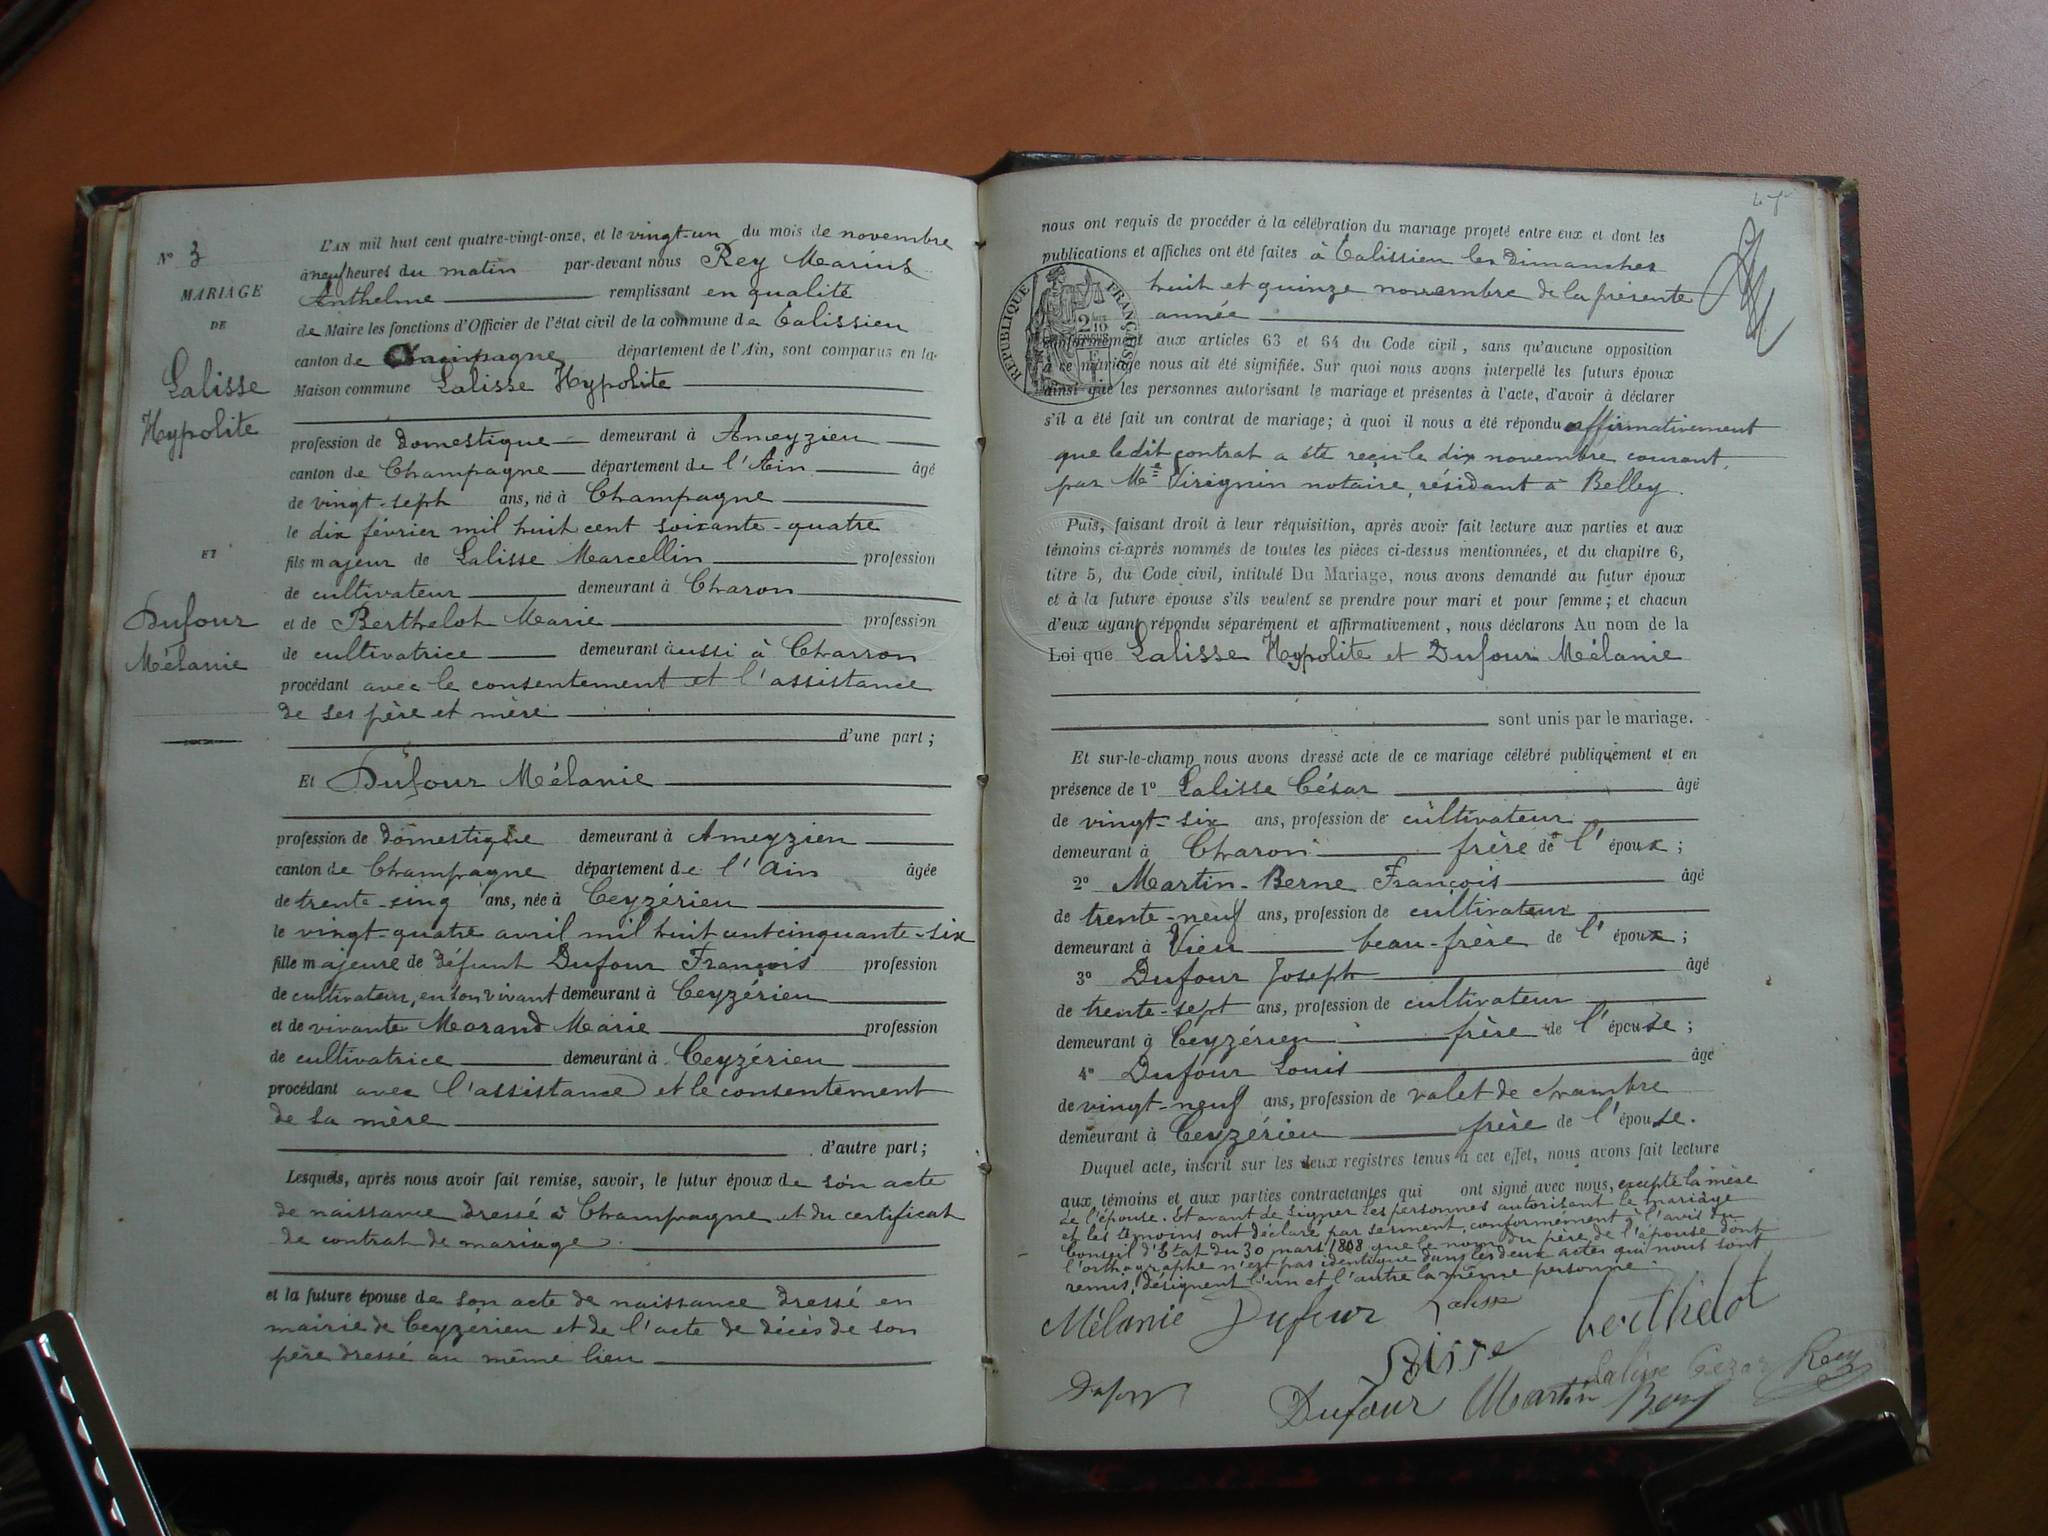 N° 3
MARIAGE
DE
Lalisse
Hypolite
ET
Dufour
Mélanie
L'AN mil huit cent quatre-vingt-onze, et le vingt-un du mois de novembre
à neuf heures du matin par-devant nous Rey Marius
Anthelme remplissant en qualité
de Maire les fonctions d'Officier de l'état civil de la commune de Talissieu
canton de Champagne département de l'Ain, sont comparus en la
Maison commune Lalisse Hypolite
profession de domestique demeurant à Ameyzieu
canton de Champagne département de l'Ain âgé
de vingt-sept ans, né à Champagne
le dix février mil huit cent soixante-quatre
fils majeur de Lalisse Marcellin profession
de cultivateur demeurant à Charon
et de Berthelot Marie profession
de cultivatrice demeurant aussi à Charron
procédant avec le consentement et l'assistance
de ses père et mère
d'une part;
Et Dufour Mélanie
profession de domestique demeurant à Ameyzieu
canton de Champagne département de l'Ain âgée
de trente-cinq ans, née à Ceyzérieu
le vingt-quatre avril mil huit cent cinquante-six
fille majeure de défunt Dufour François profession
de cultivateur, en son vivant demeurant à Ceyzérieu
et de vivante Morand Marie profession
de cultivatrice demeurant à Ceyzérieu
procédant avec l'assistance et le consentement
de sa mère
d'autre part;
Lesquels, après nous avoir fait remise, savoir, le futur époux de son acte
de naissance dressé à Champagne et du certificat
de contrat de mariage
et la future épouse de son acte de naissance dressé en
mairie de Ceyzerieu et de l'acte de décès de son
père dressé au même lieu
nous ont requis de procéder à la célébration du mariage projeté entre eux et dont les
publications et affiches ont été faites à Talissieu les dimanches
huit et quinze novembre de la présente
année
RÉPUBLIQUE FRANÇAISE
2/10
conformément aux articles 63 et 64 du Code civil, sans qu'aucune opposition
à ce mariage nous ait été signifiée. Sur quoi nous avons interpellé les futurs époux
ainsi que les personnes autorisant le mariage et présentes à l'acte, d'avoir à déclarer
s'il a été fait un contrat de mariage; à quoi il nous a été répondu affirmativement
que le dit contrat a été reçu le dix novembre courant,
par Me Virignin notaire, résidant à Belley.
Puis, faisant droit à leur réquisition, après avoir fait lecture aux parties et aux
témoins ci-après nommés de toutes les pièces ci-dessus mentionnées, et du chapitre 6,
titre 5, du Code civil, intitulé Du Mariage, nous avons demandé au futur époux
et à la future épouse s'ils veulent se prendre pour mari et pour femme; et chacun
d'eux ayant répondu séparément et affirmativement, nous déclarons Au nom de la
Loi que Lalisse Hypolite et Dufour Mélanie
sont unis par le mariage.
Et sur-le-champ nous avons dressé acte de ce mariage célébré publiquement et en
présence de 1° Lalisse César âgé
de vingt-six ans, profession de cultivateur
demeurant à Charon frère de l'époux;
2° Martin-Berne François âgé
de trente-neuf ans, profession de cultivateur
demeurant à Vieu beau-frère de l'époux;
3° Dufour Joseph âgé
de trente-sept ans, profession de cultivateur
demeurant à Ceyzérieu frère de l'épouse;
4° Dufour Louis âgé
de vingt-neuf ans, profession de valet de chambre
demeurant à Ceyzérieu frère de l'épouse.
Duquel acte, inscrit sur les deux registres tenus à cet effet, nous avons fait lecture
aux témoins et aux parties contractantes qui ont signé avec nous, excepté la mère
de l'épouse. Et avant de signer les personnes autorisant le mariage
et les témoins ont déclaré par serment, conformément à l'avis du
Conseil d'Etat du 30 mars 1808 que le nom du père de l'épouse dont
l'orthographe n'est pas identique dans les deux actes qui nous sont
remis, désignent l'un et l'autre la même personne.
Mélanie Dufour Lalisse berthelot
Lalisse Cezar Rey
Dufour Dufour Martin Bern